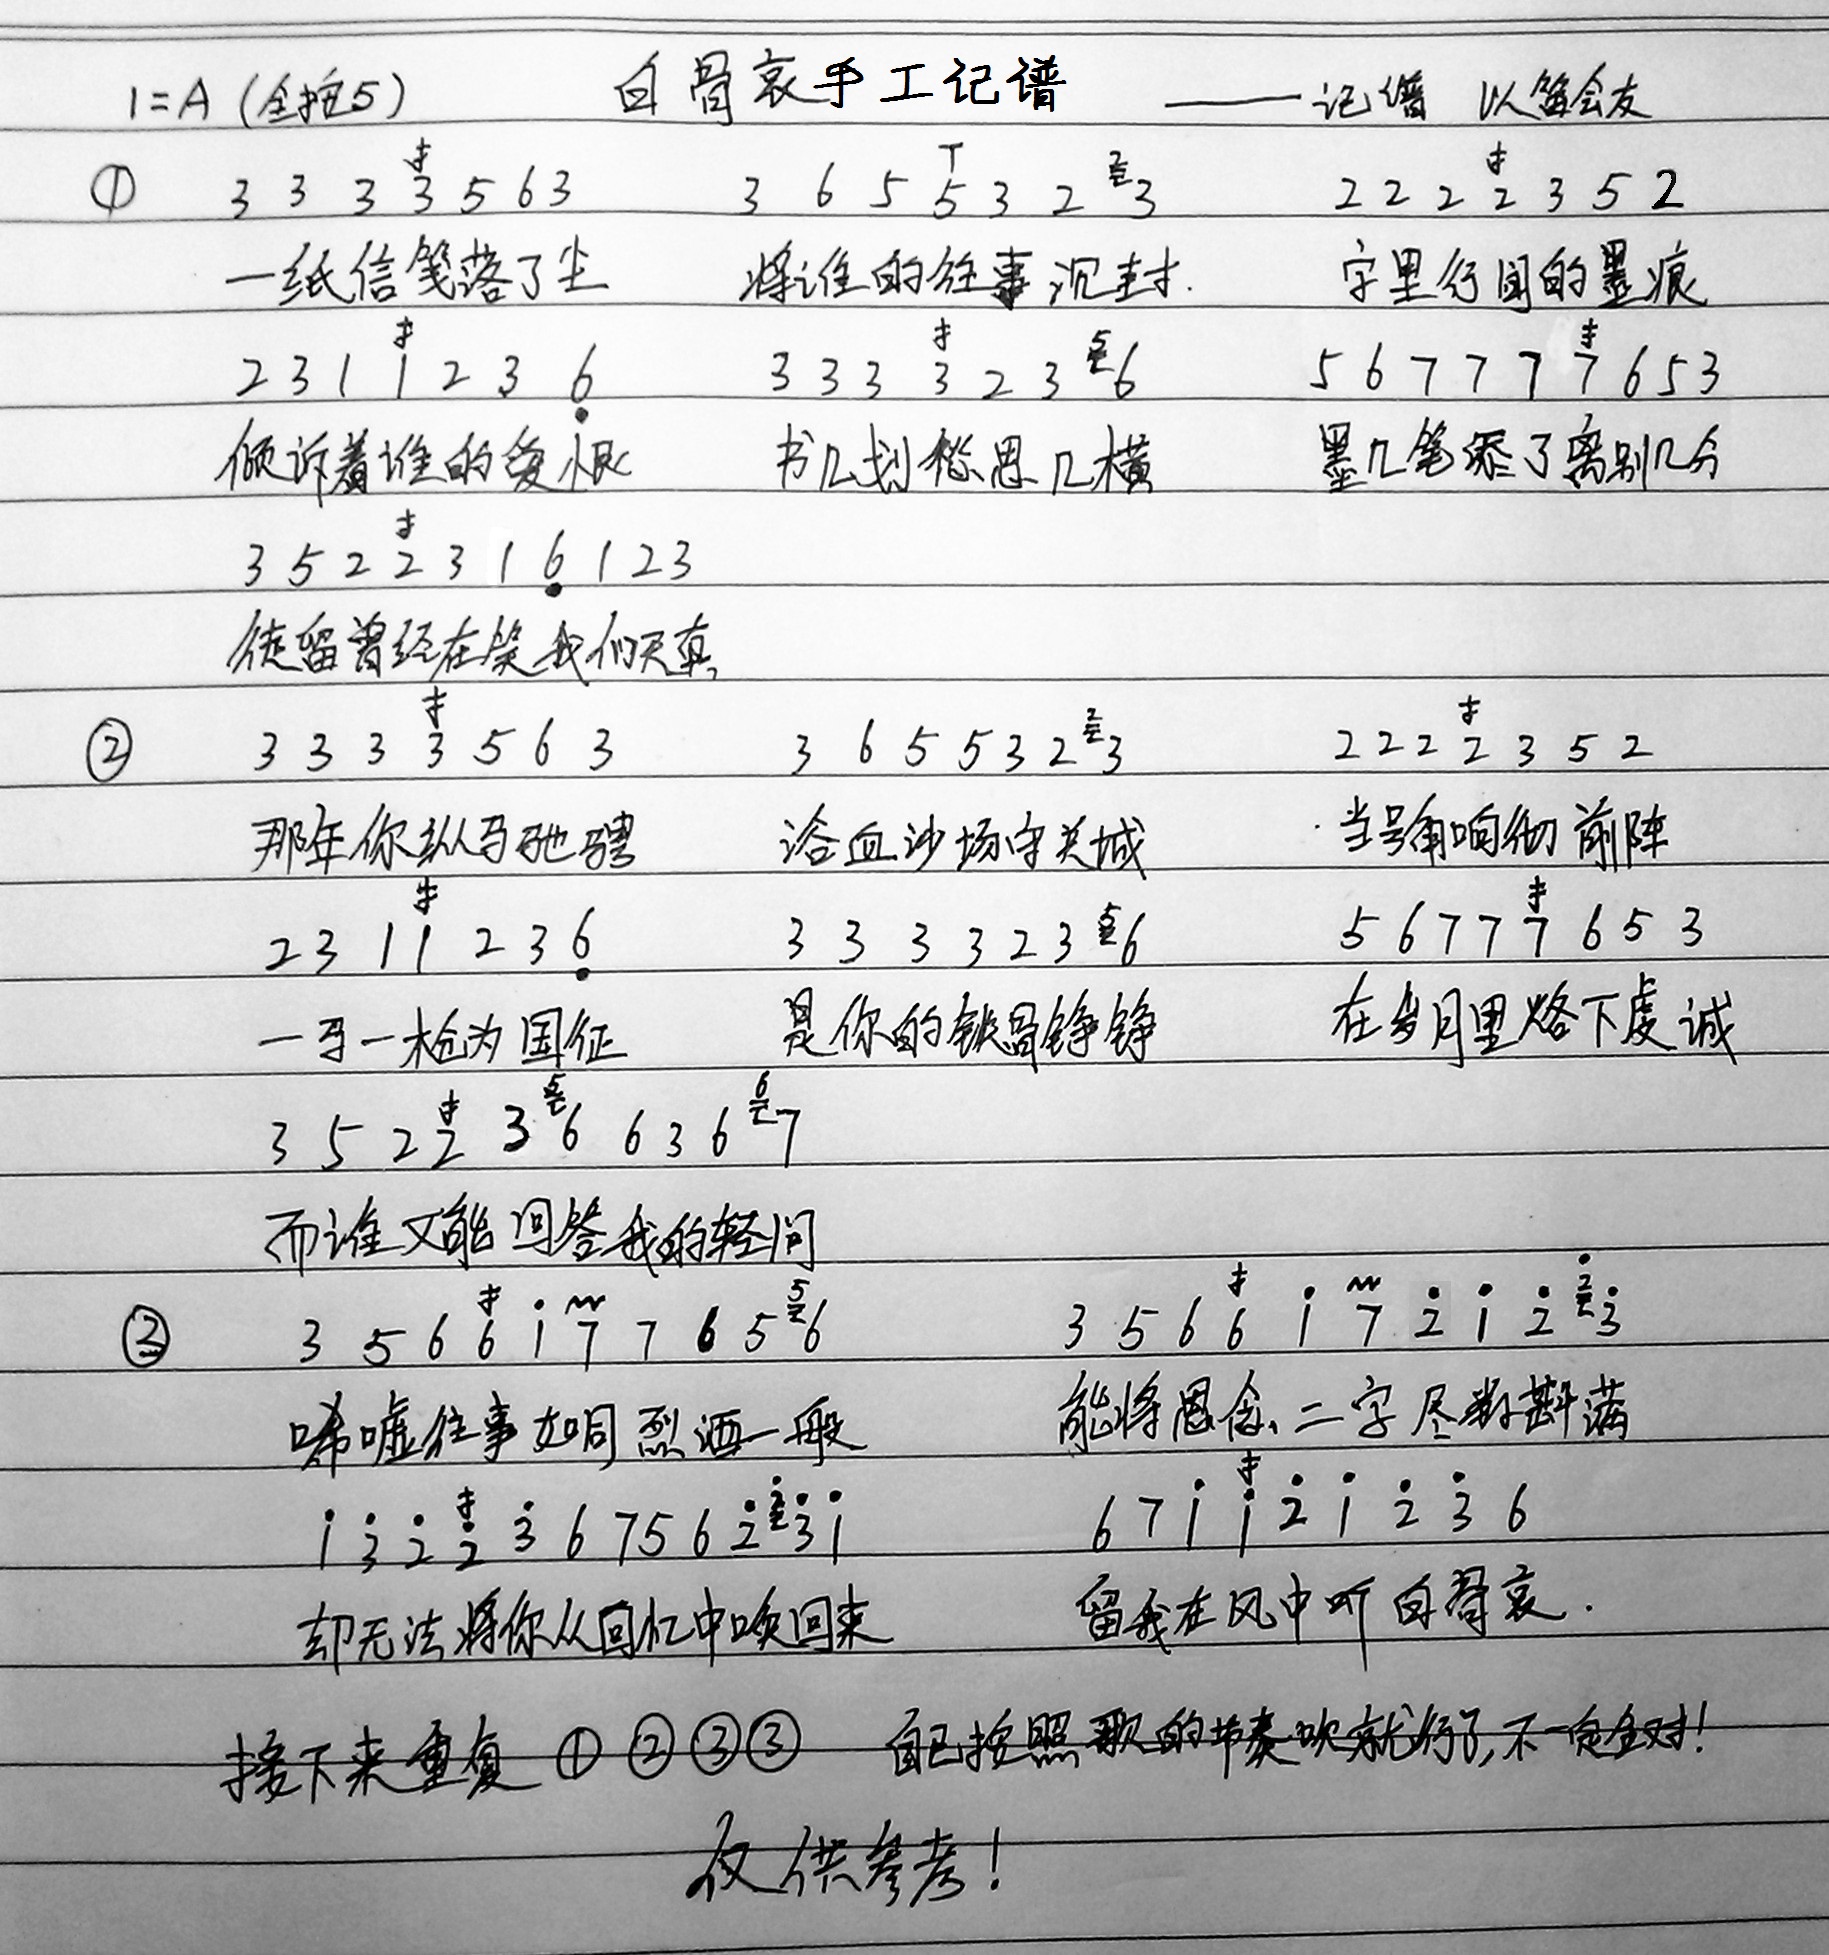 1=A (全按5) 白骨哀手工记谱 —— 记谱 以笛会友
① 3 3 3 3 5 6 3 3 6 5 5 3 2 2 3 2 2 2 2 3 5 2
一纸信笺落了尘 将谁的往事沉封. 字里行间的墨痕
2 3 1 1 2 3 6̣ 3 3 3 3 2 3 5 6 5 6 7 7 7 7 6 5 3
倾诉着谁的爱恨 书几划愁思几横 墨几笔添了离别几分
3 5 2 2 3 1 6̣ 1 2 3
徒留曾经在笑我们天真
② 3 3 3 3 5 6 3 3 6 5 5 3 2 2 3 2 2 2 2 3 5 2
那年你纵马驰骋 浴血沙场守关城 当号角响彻前阵
2 3 1 1 2 3 6̣ 3 3 3 3 2 3 5 6 5 6 7 7 7 6 5 3
一马一枪为国征 是你的铁骨铮铮 在岁月里烙下虔诚
3 5 2 2 3 5 6 6 3 6 6 7
而谁又能回答我的轻问
③ 3 5 6 6 1̇ 7 7 6 5 5 6 3 5 6 6 1̇ 7 2̇ 1̇ 2̇ 2̇ 3̇
唏嘘往事如同烈酒一般 能将思念二字尽数斟满
1̇ 3̇ 2̇ 2̇ 3̇ 6 7 5 6 2̇ 2̇ 3̇ 1̇ 6 7 1̇ 1̇ 2̇ 1̇ 2̇ 3̇ 6
却无法将你从回忆中唤回来 留我在风中听白骨哀.
接下来重复 ① ② ③ ③ 自己按照歌的节奏吹就行了,不一定全对!
仅供参考!